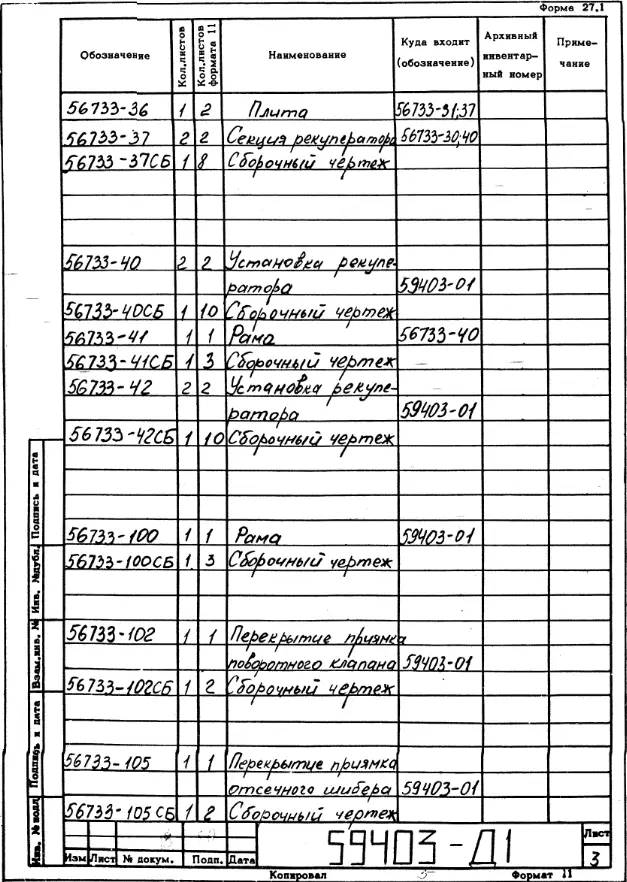 Форма 27.1
Обозначение Кол.листов Кол.листов формата 11 Наименование Куда входит (обозначение) Архивный инвентар- ный номер Приме- чание
56733-36 1 2 Плита 56733-31;37
56733-37 2 2 Секция рекуператора 56733-30;40
56733-37СБ 1 8 Сборочный чертеж
56733-40 2 2 Установка рекупе-
ратора 59403-01
56733-40СБ 1 10 Сборочный чертеж
56733-41 1 1 Рама 56733-40
56733-41СБ 1 3 Сборочный чертеж
56733-42 2 2 Установка рекупе-
ратора 59403-01
56733-42СБ 1 10 Сборочный чертеж
56733-100 1 1 Рама 59403-01
56733-100СБ 1 3 Сборочный чертеж
56733-102 1 1 Перекрытие приямка
поворотного клапана 59403-01
56733-102СБ 1 2 Сборочный чертеж
56733-105 1 1 Перекрытие приямка
отсечного шибера 59403-01
56733-105СБ 1 2 Сборочный чертеж
Инв. № подл. Подпись и дата Взам.инв. № Инв. №дубл. Подпись и дата
59403-Д1
Лист
3
Изм Лист № докум. Подп. Дата
Копировал Формат 11